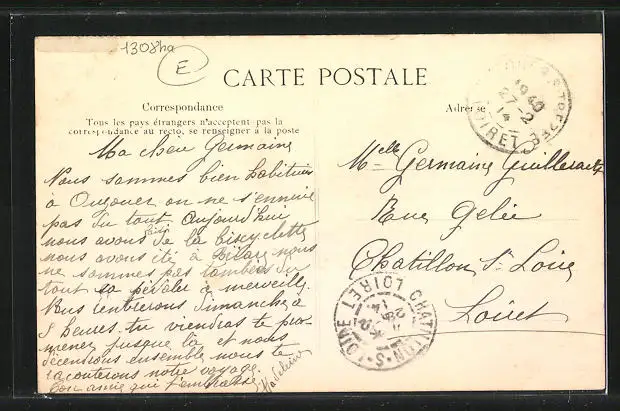 1308ha
E
CARTE POSTALE
Correspondance
Tous les pays étrangers n'acceptent pas la
correspondance au recto, se renseigner à la poste
Adresse
1940
27-2
LOIRET
Ma chère Germaine
Nous sommes bien habituées
à Ouzouer on ne s'ennuie
pas du tout Aujourd'hui
nous avons fait de la biscyclette
nous avons été à nous
ne sommes pas tombées du
tout sa pédaler à merveille.
Nous rentrerons Dimanche à
8 heures tu viendras te pro-
mener jusque là et nous
déscendrons ensemble nous te
raconterons notre voyage.
Ton amie qui t'embrasse
Madeleine
Melle Germaine
Rue Gelée
Chatillon St Loire
Loiret
CHATILLON-S-LOIRE
LOIRET
28